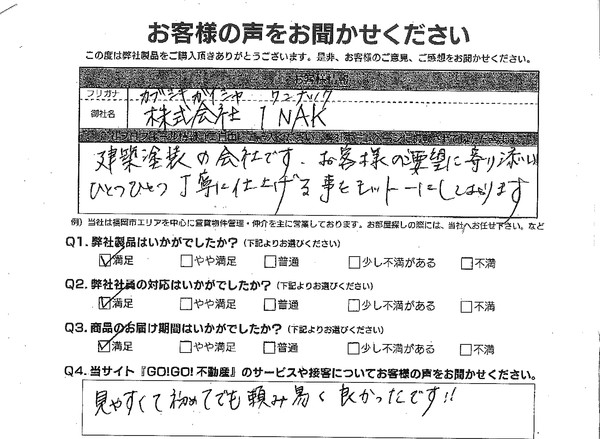 お客様の声をお聞かせください
この度は弊社製品をご購入頂きありがとうございます。是非、お客様のご意見、ご感想をお聞かせください。
お客様情報
フリガナ カブシキガイシャ ワンナック
御社名 株式会社 1NAK
建築塗装の会社です。お客様の要望に寄り添い
ひとつひとつ丁寧に仕上げる事をモットーにしております
例）当社は福岡市エリアを中心に賃貸物件管理・仲介を主に営業しております。お部屋探しの際には、当社へお任せ下さい。など
Q1. 弊社製品はいかがでしたか？（下記よりお選びください）
満足 やや満足 普通 少し不満がある 不満
Q2. 弊社社員の対応はいかがでしたか？（下記よりお選びください）
満足 やや満足 普通 少し不満がある 不満
Q3. 商品のお届け期間はいかがでしたか？（下記よりお選びください）
満足 やや満足 普通 少し不満がある 不満
Q4. 当サイト『GO!GO!不動産』のサービスや接客についてお客様の声をお聞かせください。
見やすくて初めてでも頼み易く良かったです!!